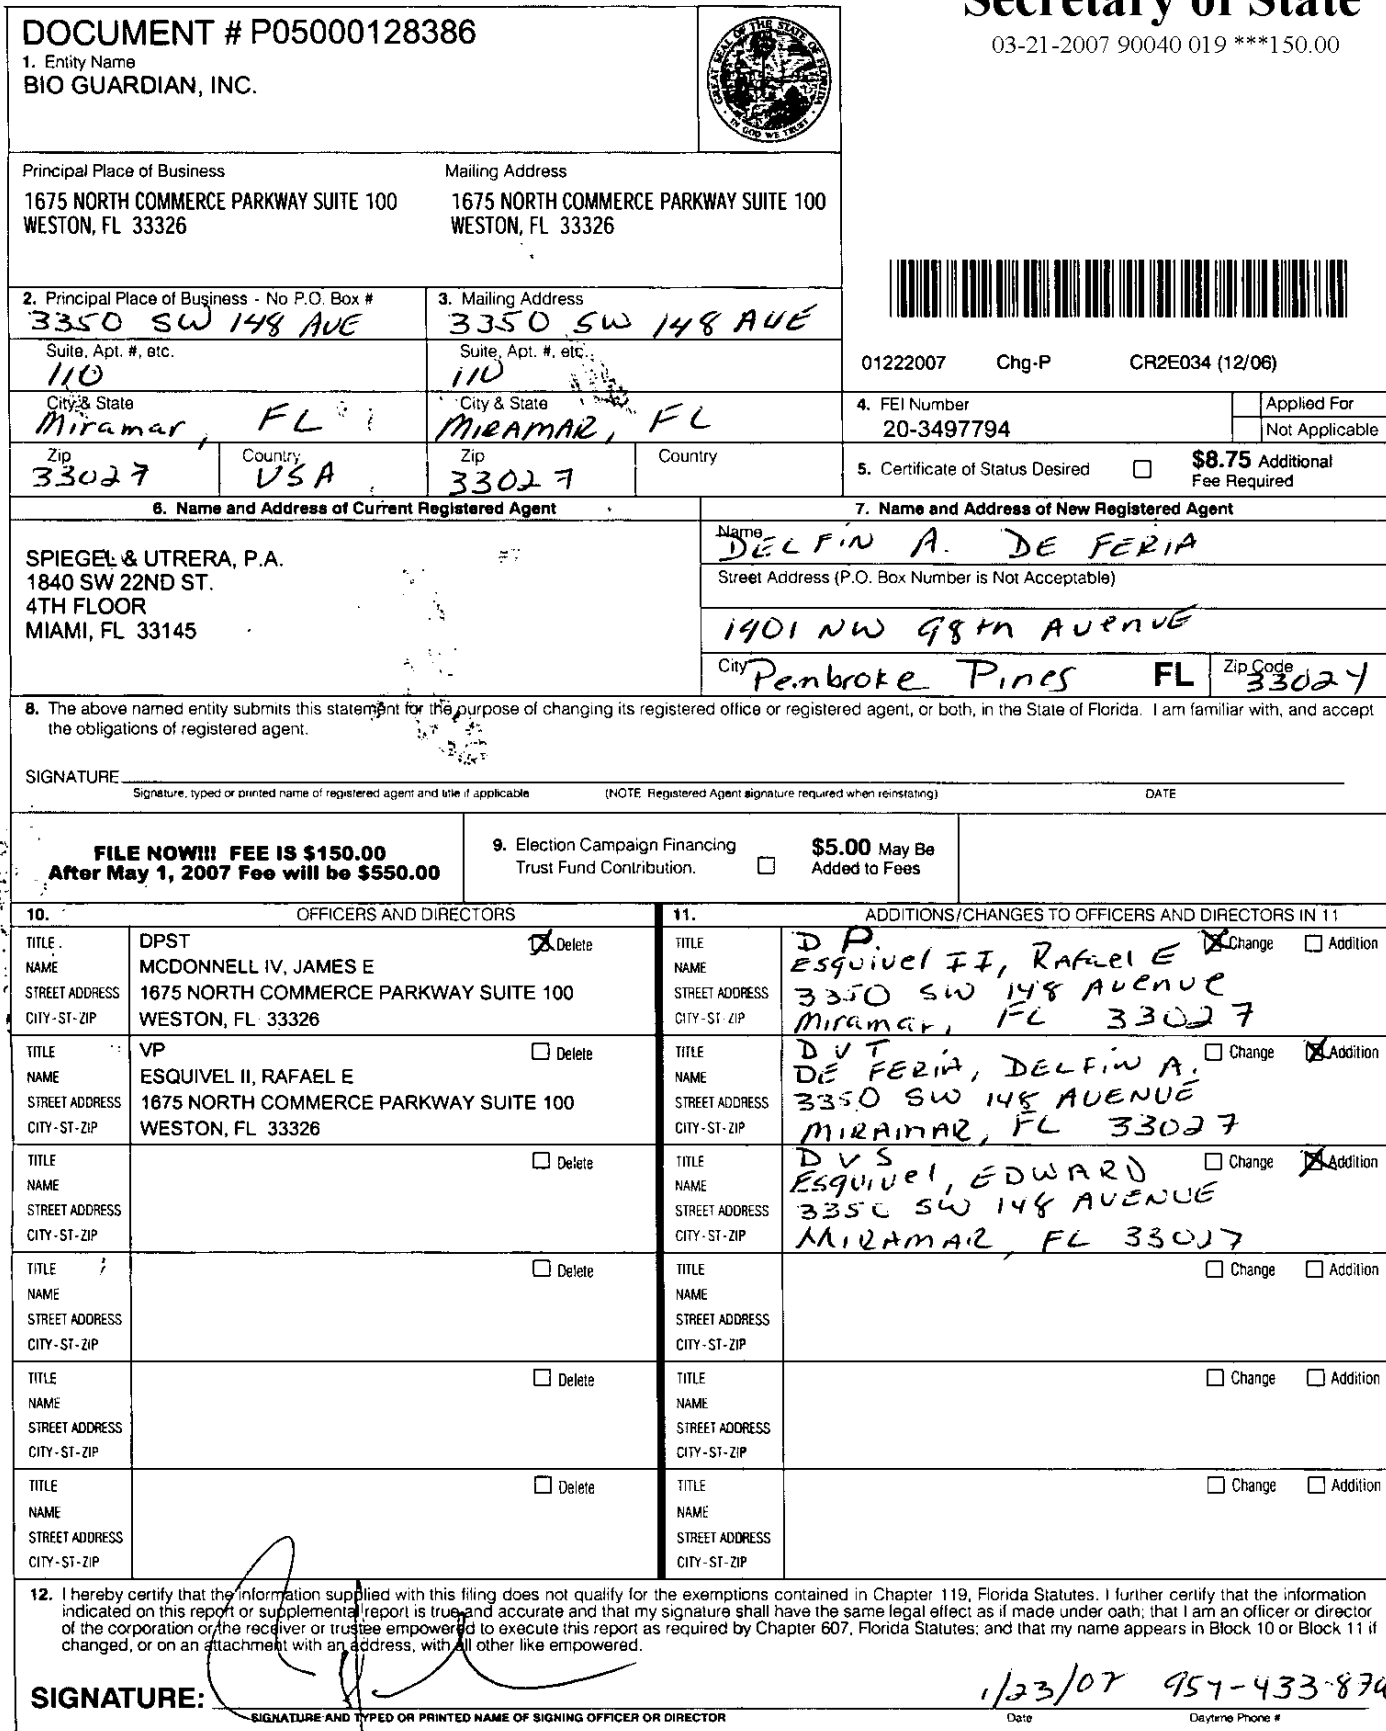 Secretary of State
03-21-2007 90040 019 ***150.00
DOCUMENT # P05000128386
1. Entity Name
BIO GUARDIAN, INC.
GREAT SEAL OF THE STATE OF FLORIDA
IN GOD WE TRUST
Principal Place of Business
1675 NORTH COMMERCE PARKWAY SUITE 100
WESTON, FL 33326
Mailing Address
1675 NORTH COMMERCE PARKWAY SUITE 100
WESTON, FL 33326
2. Principal Place of Business - No P.O. Box #
3350 SW 148 AVE
3. Mailing Address
3350 SW 148 AVE
Suite, Apt. #, etc.
110
Suite, Apt. #, etc.
110
01222007 Chg-P CR2E034 (12/06)
City & State
Miramar, FL
City & State
MIRAMAR, FL
4. FEI Number
20-3497794
Applied For
Not Applicable
Zip
33027
Country
USA
Zip
33027
Country
5. Certificate of Status Desired
$8.75 Additional
Fee Required
6. Name and Address of Current Registered Agent
SPIEGEL & UTRERA, P.A.
1840 SW 22ND ST.
4TH FLOOR
MIAMI, FL 33145
7. Name and Address of New Registered Agent
Name
DELFIN A. DE FERIA
Street Address (P.O. Box Number is Not Acceptable)
1401 NW 98th AVENUE
City Pembroke Pines FL Zip Code 33024
8. The above named entity submits this statement for the purpose of changing its registered office or registered agent, or both, in the State of Florida. I am familiar with, and accept
the obligations of registered agent.
SIGNATURE
Signature, typed or printed name of registered agent and title if applicable (NOTE Registered Agent signature required when reinstating) DATE
FILE NOW!!! FEE IS $150.00
After May 1, 2007 Fee will be $550.00
9. Election Campaign Financing
Trust Fund Contribution.
$5.00 May Be
Added to Fees
10. OFFICERS AND DIRECTORS
TITLE DPST Delete
NAME MCDONNELL IV, JAMES E
STREET ADDRESS 1675 NORTH COMMERCE PARKWAY SUITE 100
CITY-ST-ZIP WESTON, FL 33326
TITLE VP Delete
NAME ESQUIVEL II, RAFAEL E
STREET ADDRESS 1675 NORTH COMMERCE PARKWAY SUITE 100
CITY-ST-ZIP WESTON, FL 33326
TITLE Delete
NAME
STREET ADDRESS
CITY-ST-ZIP
TITLE Delete
NAME
STREET ADDRESS
CITY-ST-ZIP
TITLE Delete
NAME
STREET ADDRESS
CITY-ST-ZIP
TITLE Delete
NAME
STREET ADDRESS
CITY-ST-ZIP
11. ADDITIONS/CHANGES TO OFFICERS AND DIRECTORS IN 11
TITLE D P. Change Addition
NAME Esquivel II, Rafael E
STREET ADDRESS 3350 SW 148 Avenue
CITY-ST-ZIP Miramar, FL 33027
TITLE D V T Change Addition
NAME DE FERIA, DELFIN A.
STREET ADDRESS 3350 SW 148 AVENUE
CITY-ST-ZIP MIRAMAR, FL 33027
TITLE D V S Change Addition
NAME Esquivel, EDWARD
STREET ADDRESS 3350 SW 148 AVENUE
CITY-ST-ZIP MIRAMAR, FL 33027
TITLE Change Addition
NAME
STREET ADDRESS
CITY-ST-ZIP
TITLE Change Addition
NAME
STREET ADDRESS
CITY-ST-ZIP
TITLE Change Addition
NAME
STREET ADDRESS
CITY-ST-ZIP
12. I hereby certify that the information supplied with this filing does not qualify for the exemptions contained in Chapter 119, Florida Statutes. I further certify that the information
indicated on this report or supplemental report is true and accurate and that my signature shall have the same legal effect as if made under oath; that I am an officer or director
of the corporation or the receiver or trustee empowered to execute this report as required by Chapter 607, Florida Statutes; and that my name appears in Block 10 or Block 11 if
changed, or on an attachment with an address, with all other like empowered.
SIGNATURE: 1/23/07 954-433-874
SIGNATURE AND TYPED OR PRINTED NAME OF SIGNING OFFICER OR DIRECTOR Date Daytime Phone #